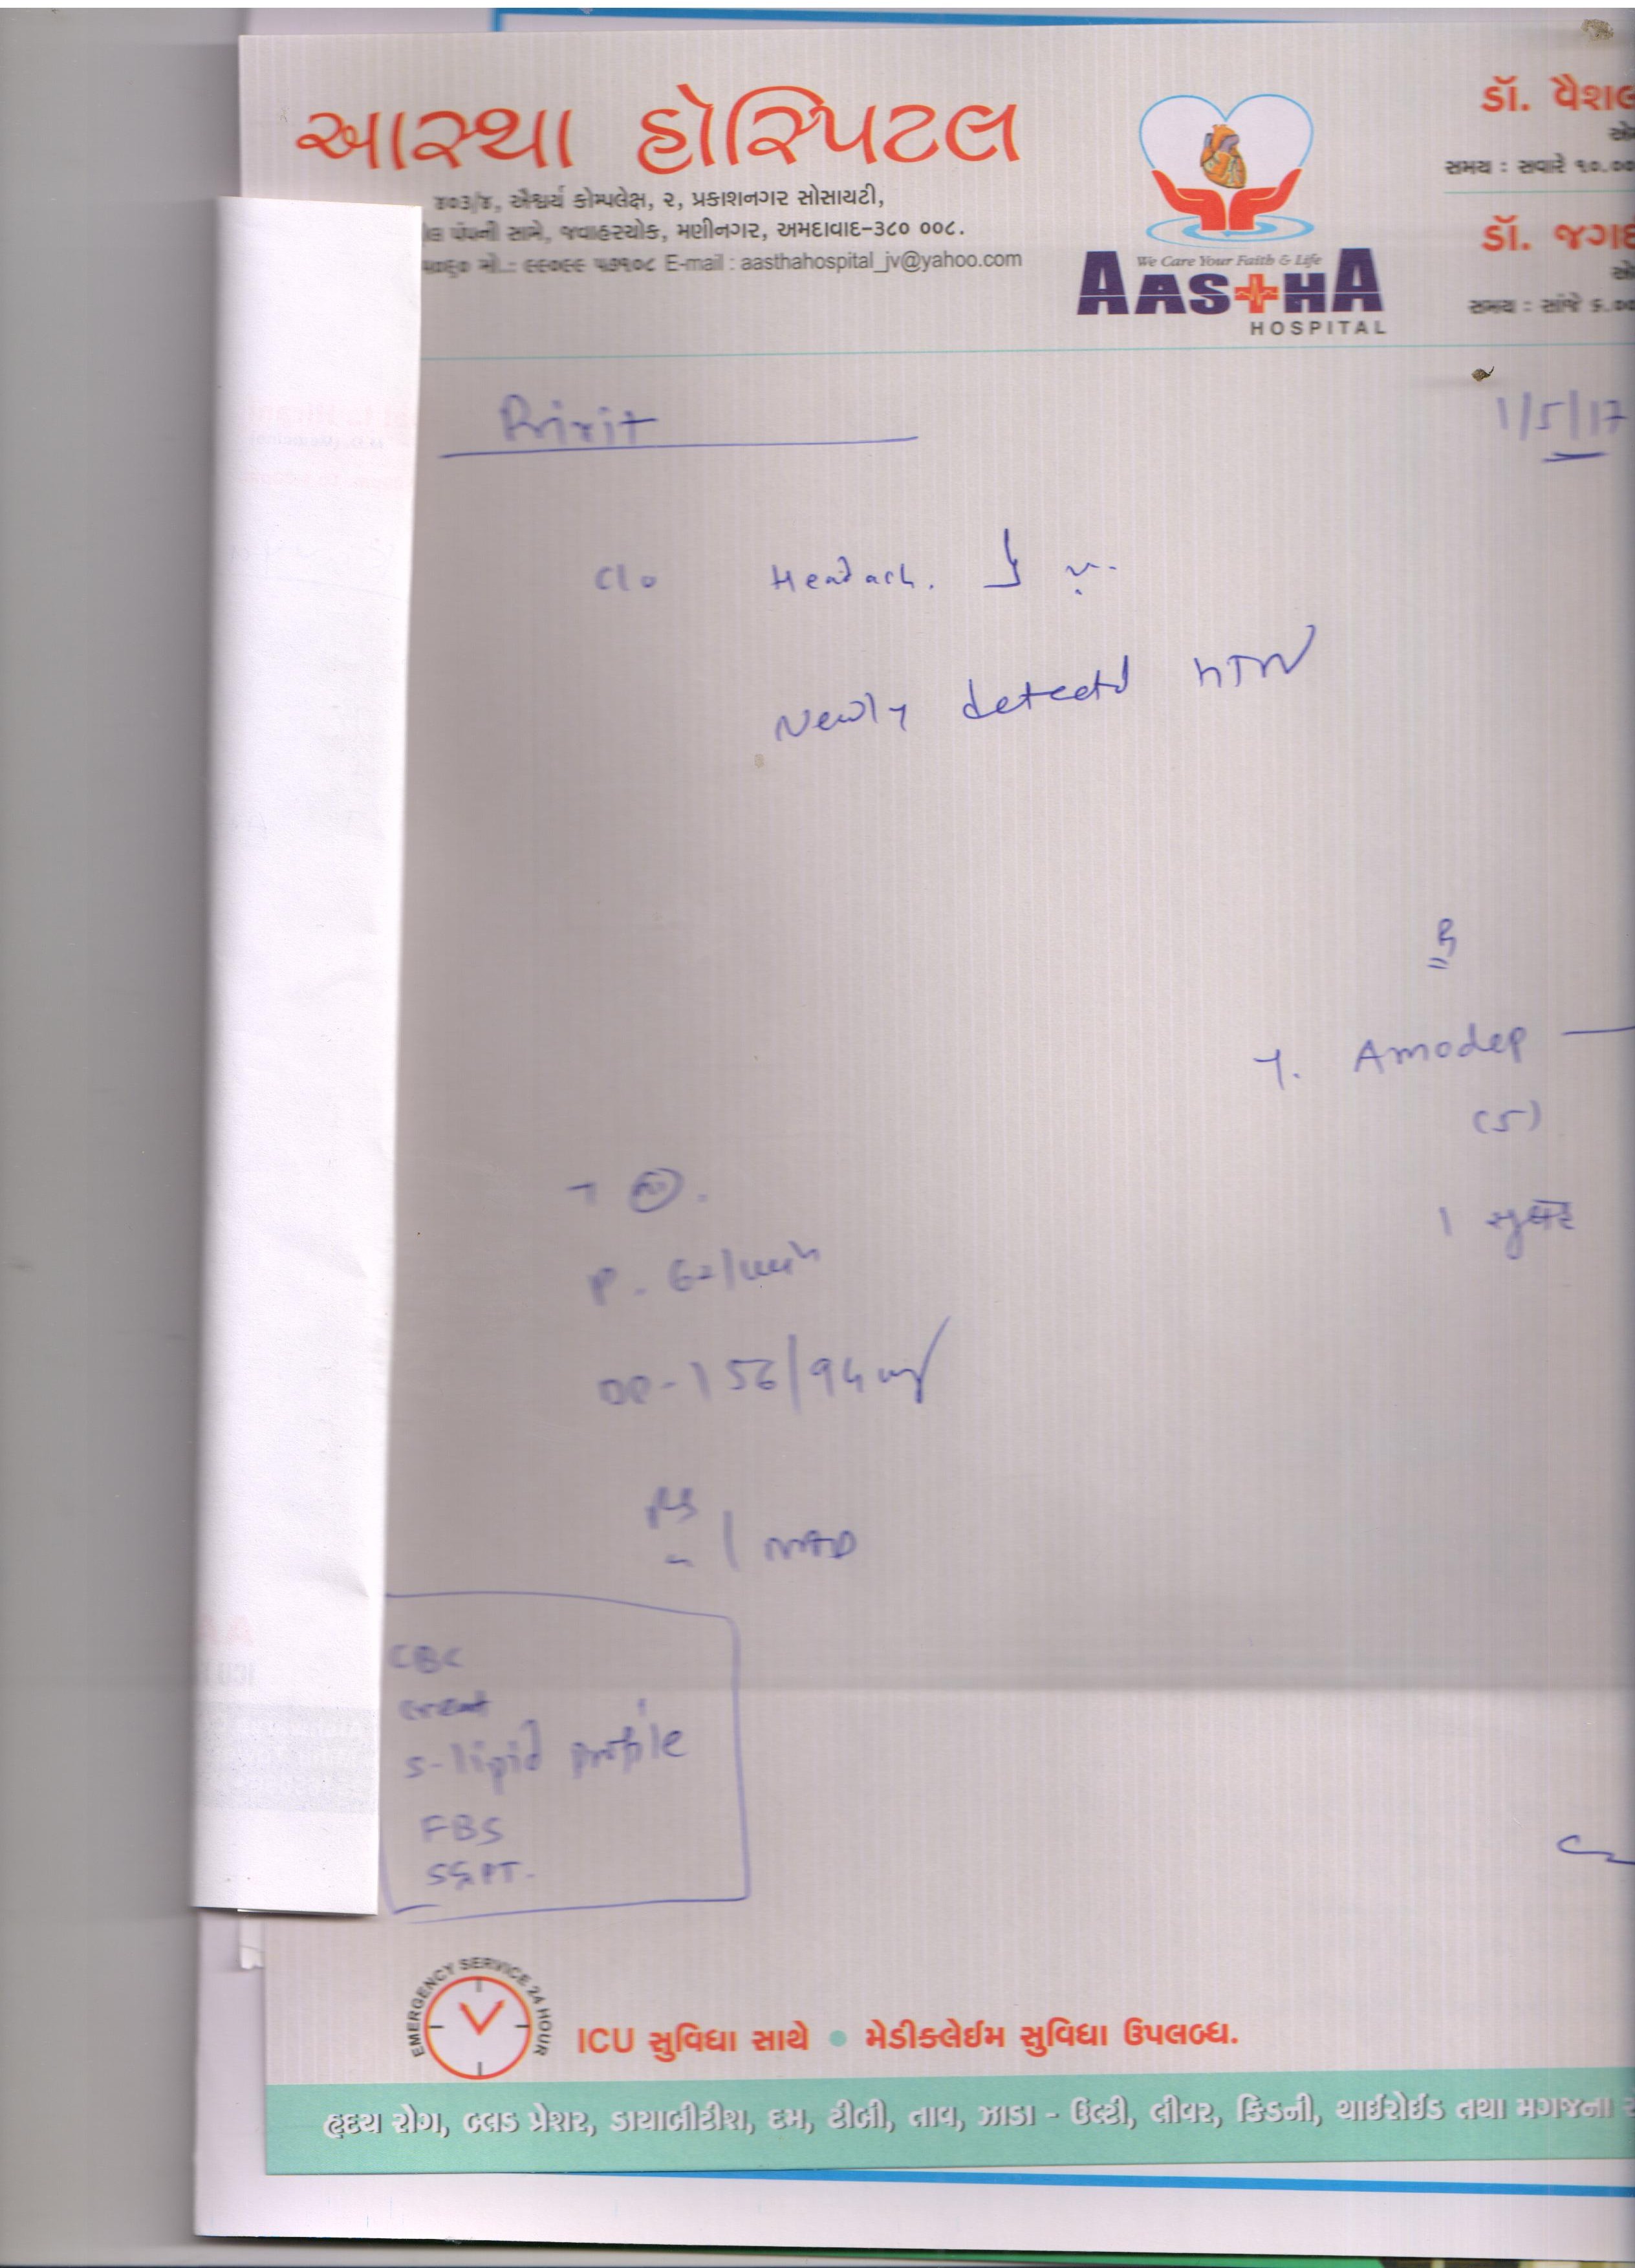 આસ્થા હોસ્પિટલ
૪૦૩/૪, ઐશ્વર્ય કોમ્પલેક્ષ, ૨, પ્રકાશનગર સોસાયટી,
પંપની સામે, જવાહરચોક, મણીનગર, અમદાવાદ-૩૮૦ ૦૦૮.
મો.: ૯૯૦૯૯ ૫૭૧૦૮ E-mail : aasthahospital_jv@yahoo.com
We Care Your Faith & Life
AASTHA
HOSPITAL
ડૉ.
સમય : સવારે ૧૦.૦૦
ડૉ.
સમય : સાંજે ૬.૦૦
1/5/17
C/o Headach.
Newly detectd HTN
Amodep
(5)
P.
156/94
NAD
CBC
creat
S-lipid profile
FBS
SGPT.
EMERGENCY SERVICE 24 HOUR
ICU સુવિધા સાથે • મેડીક્લેઈમ સુવિધા ઉપલબ્ધ.
હૃદય રોગ, બ્લડ પ્રેશર, ડાયાબીટીશ, દમ, ટીબી, તાવ, ઝાડા - ઉલ્ટી, લીવર, કિડની, થાઈરોઈડ તથા મગજના